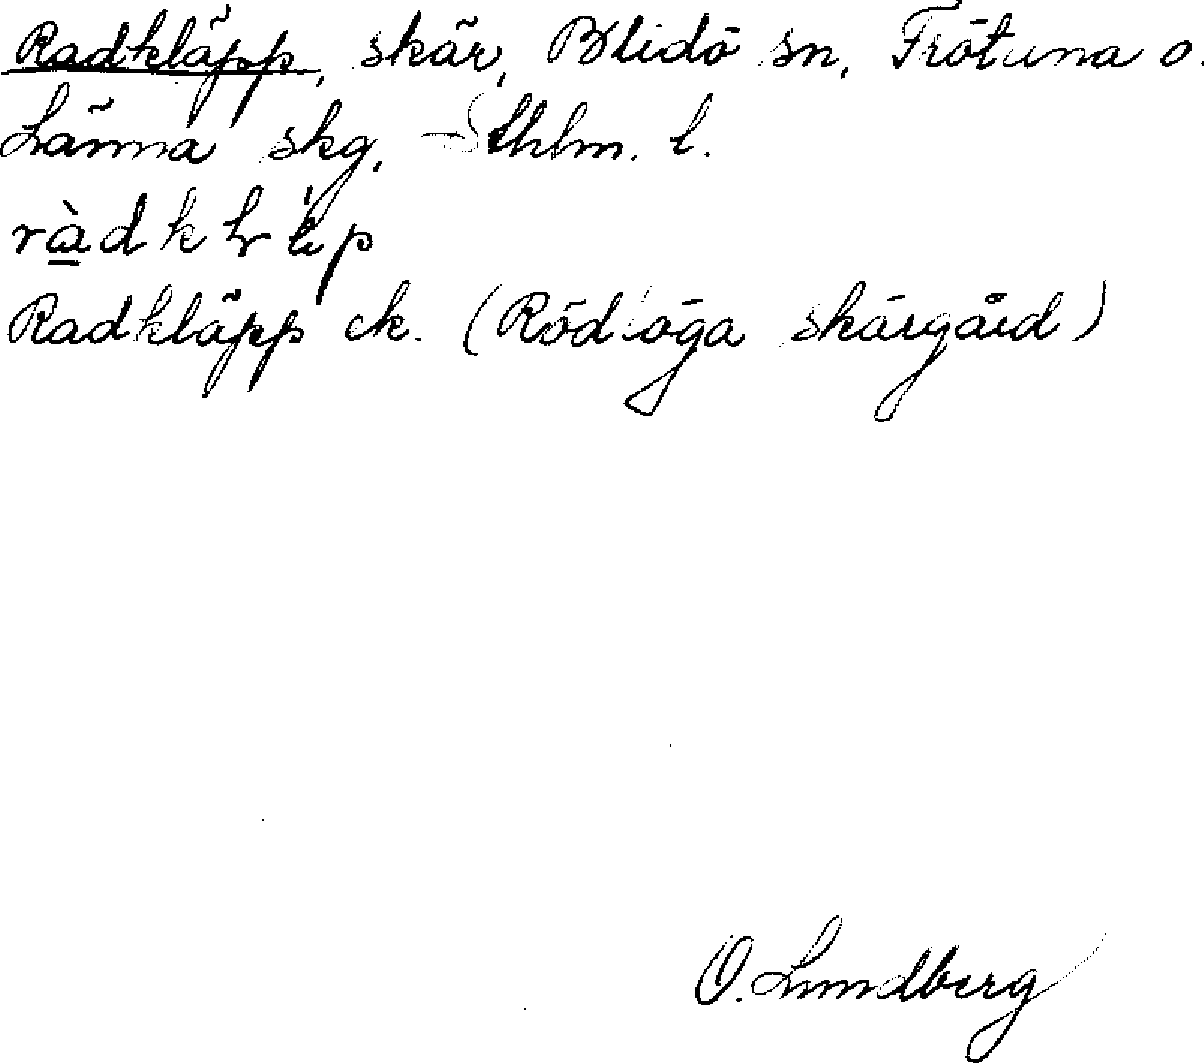 Radkläpp, skär, Blidö sn, Frötuna o.
Länna skg, Sthlm. l.
Radkläpp ek. (Rödlöga skärgård)
O. Lundberg